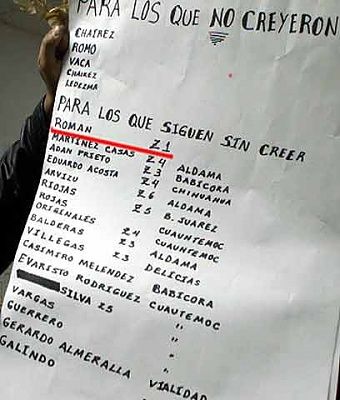 PARA LOS QUE NO CREYERON
CHAIREZ
ROMO
VACA
CHAIREZ
LEDEZMA
PARA LOS QUE SIGUEN SIN CREER
ROMAN Z1
MARTINEZ CASAS Z4 ALDAMA
ADAN PRIETO Z3 BABICORA
EDUARDO ACOSTA Z4 CHIHUAHUA
ARVIZU Z6 ALDAMA
RIOJAS Z5 B. JUAREZ
ROJAS
ORIGINALES Z4 CUAUHTEMOC
BALDERAS Z3 CUAUHTEMOC
VILLEGAS Z3 ALDAMA
CASIMIRO MELENDEZ DELICIAS
EVARISTO RODRIGUEZ BABICORA
SILVA Z5 CUAUTEMOC
VARGAS "
GUERRERO "
GERARDO ALMERALLA "
GALINDO VIALIDAD